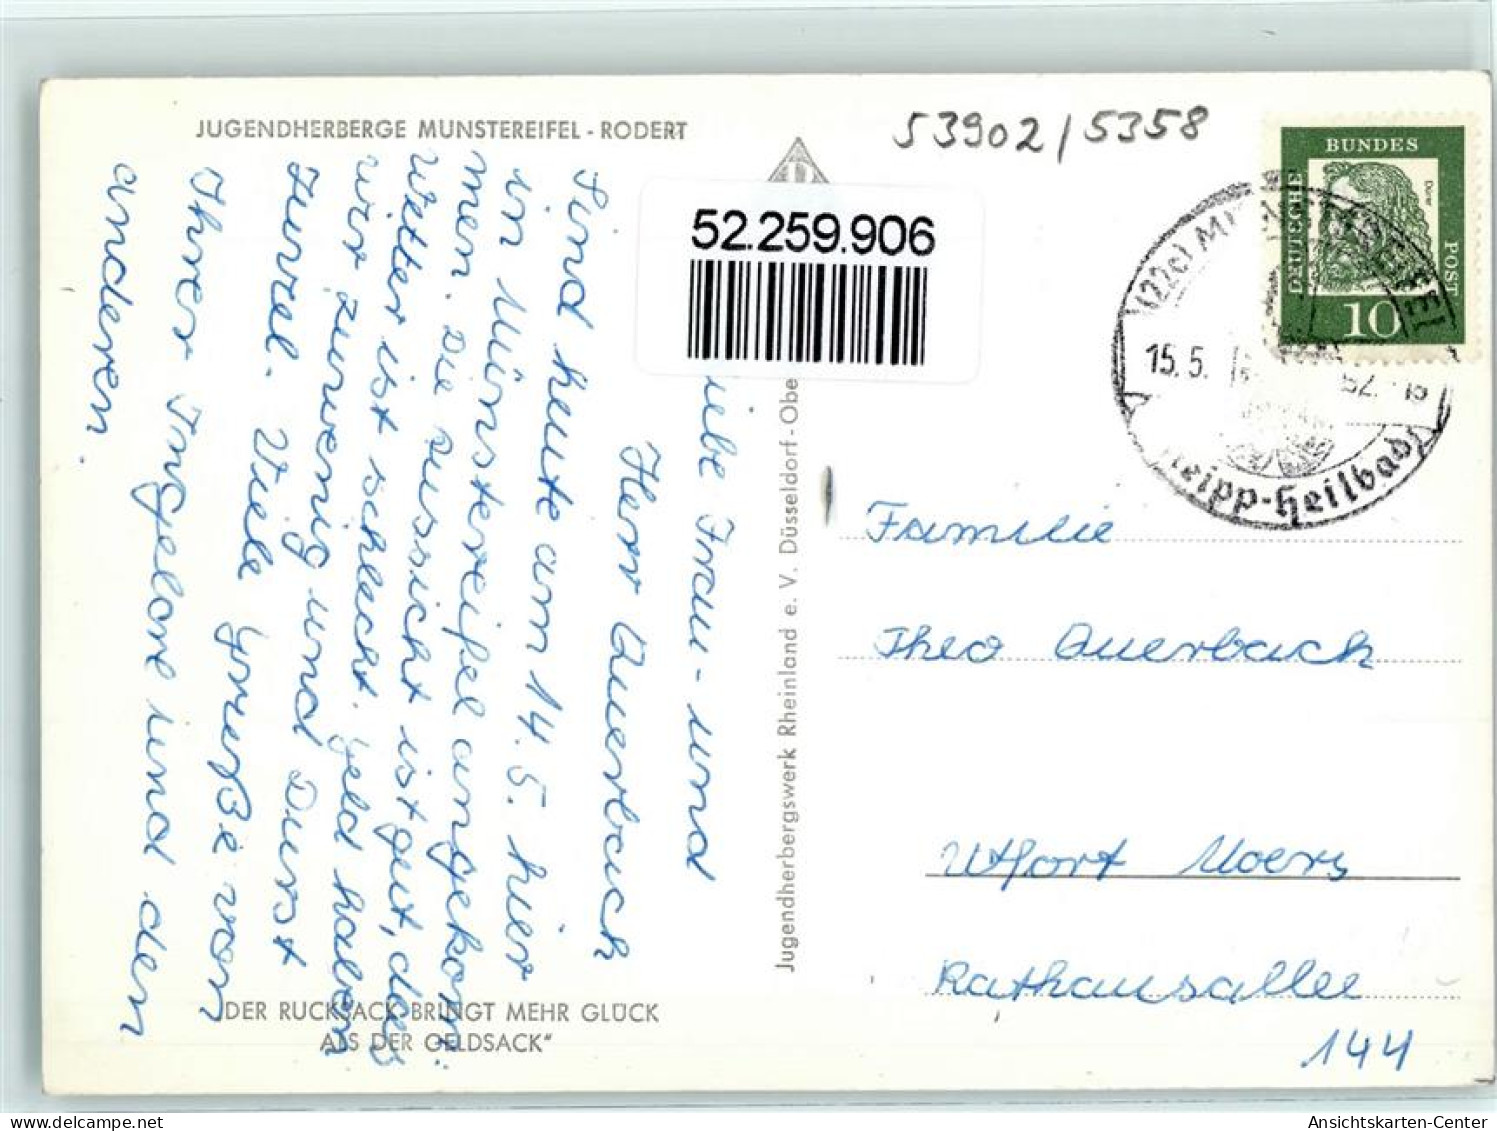 JUGENDHERBERGE MUNSTEREIFEL - RODERT
53902/5358
52.259.906
DEUTSCHE
BUNDES
POST
Dürer
10
(22c) MÜNSTEREIFEL
15.5.
62.
Kneipp-Heilbad
Liebe Frau- und
Herr Auerbach
Sind heute am 14. 5. hier
in Münstereifel angekom-
men. Die Aussicht ist gut, das
Wetter ist schlecht. Geld haben
wir zuwenig und Durst
zuviel. Viele Grüße von
Ihrer Ingelore und den
anderen.
„DER RUCKSACK BRINGT MEHR GLÜCK
ALS DER GELDSACK“
Jugendherbergswerk Rheinland e. V. Düsseldorf-Obe
Familie
Theo Auerbach
Utfort Moers
Rathausallee
144
Ansichtskarten-Center